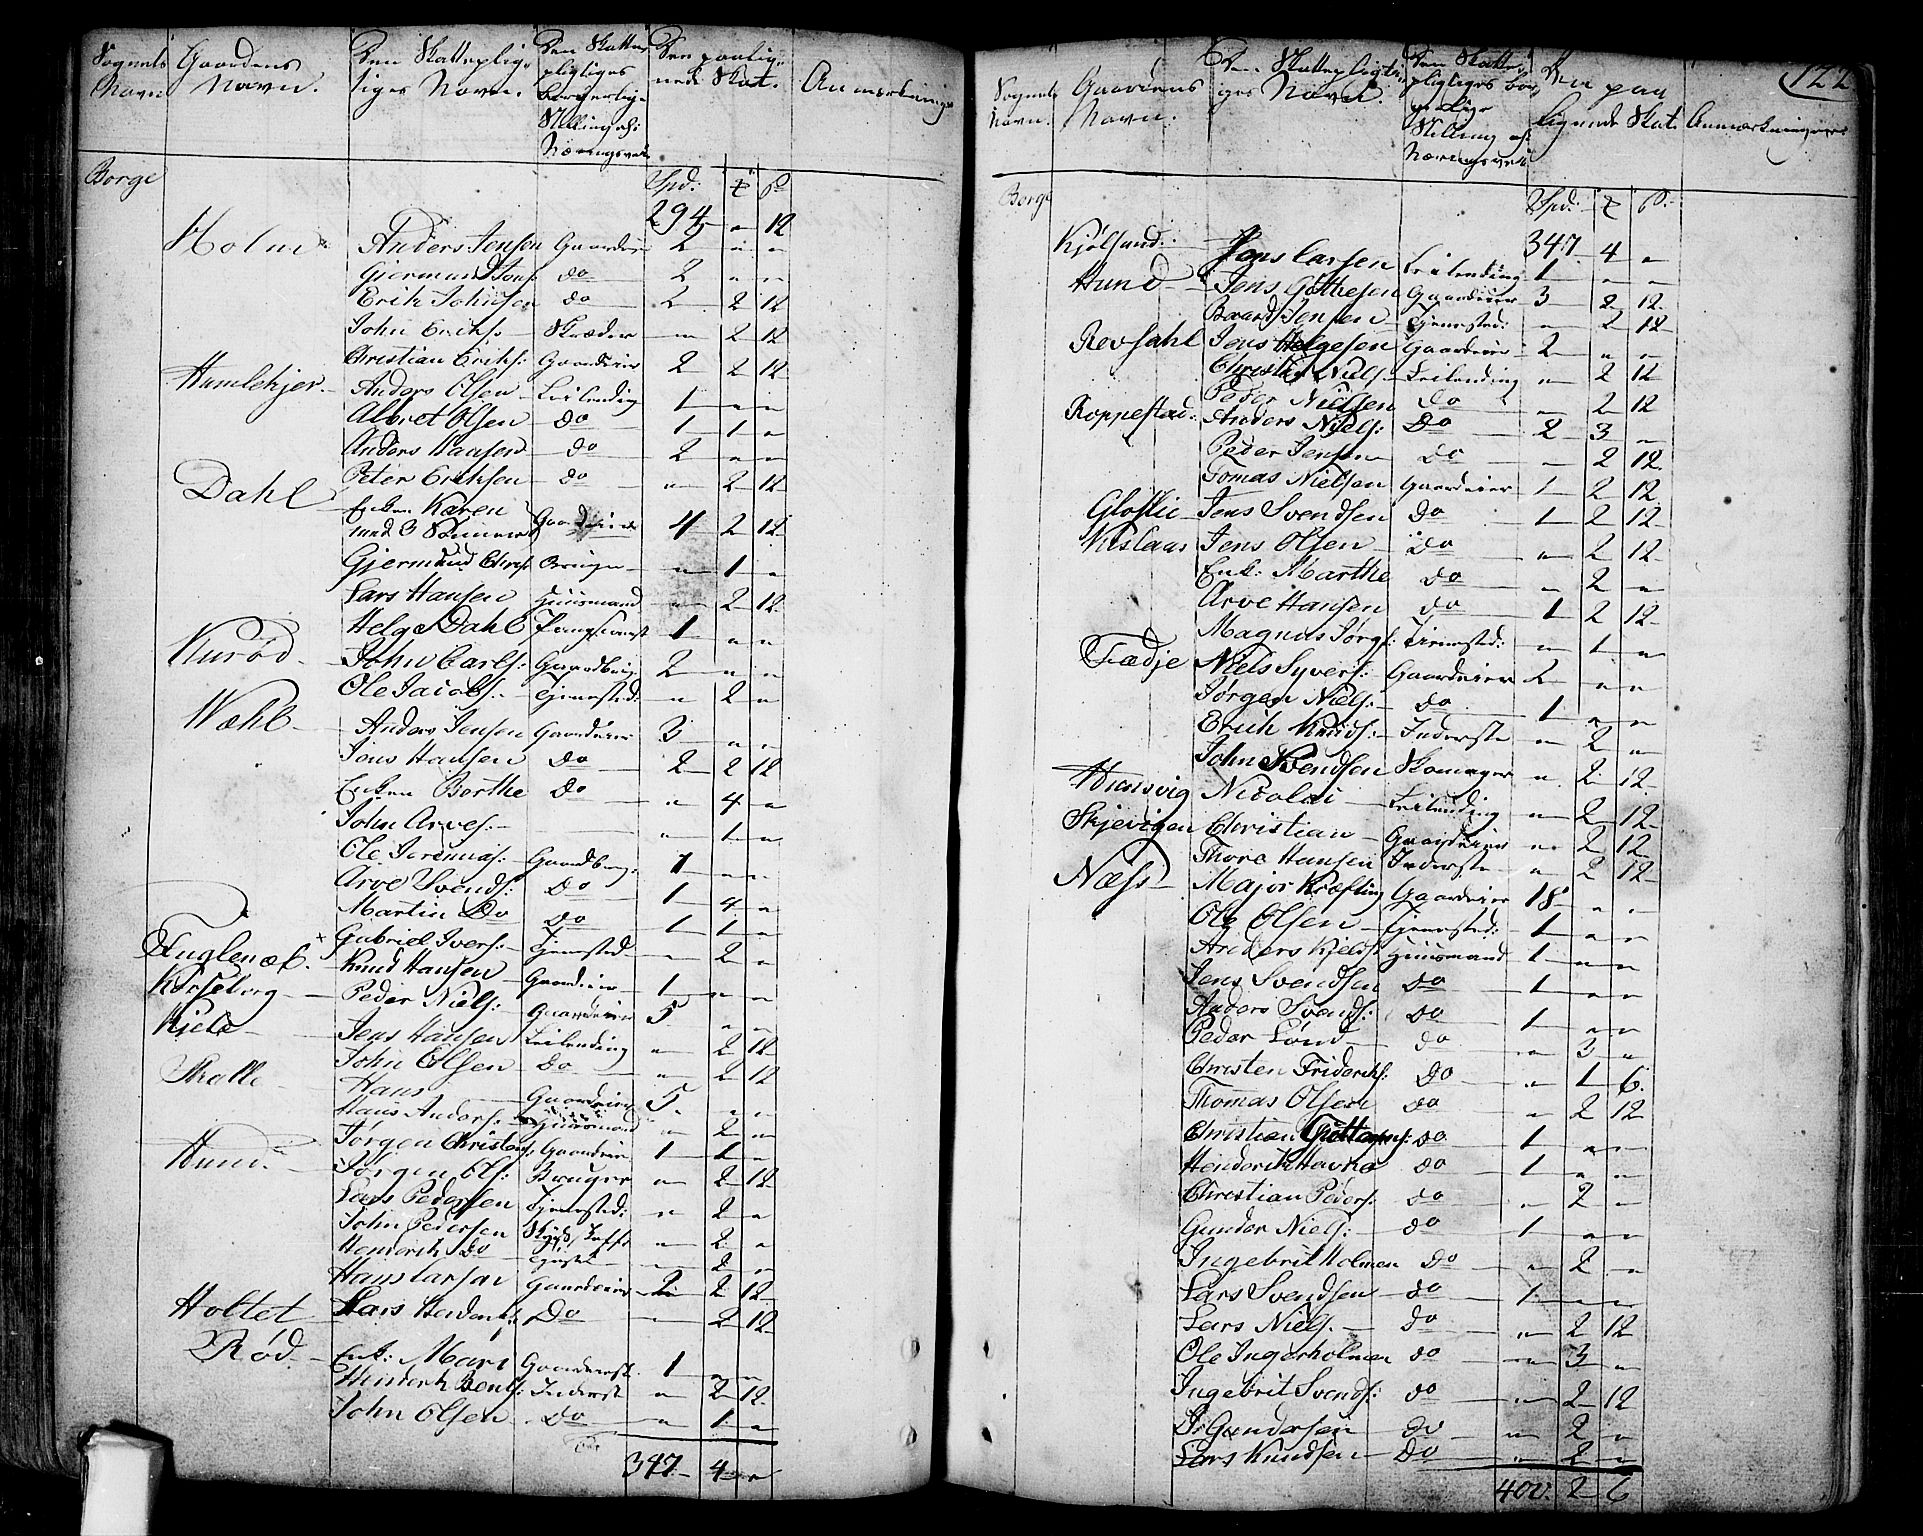 Sognets Navn Gaardens Navn. Den Skattepligtiges Navn. Den Skattepligtiges borgerlige Stilling ell: Næringsvei Den paalignede Skat. Anmærkninger
Borge Spd: ₰ β
294 " 12
Holm Anders Jensen Gaardeier 2 " "
Gjermund Jons: do 2 " "
Erich Johnsen do 2 2 12
John Erichs: Skræder " 2 12
Christian Erichs: Gaardeier 2 2 12
Humlekjer Anders Olsen Leilending 1 " "
Albret Olsen do 1 1 "
Anders Hansen do 2 " "
Peter Erichsen do " 2 12
Dahl Enken Karen med 3 Sønner Gaardeier 4 2 12
Gjermund Chrs: Bruger " 1 "
Lars Hansen Huusmand " 2 12
Helge Dahl Pensionist 1 " "
Kurød John Carls: Gaardbrug: 2 " "
Ole Jacobs: Tjenested: " 2 "
Wæhl Anders Jensen Gaardeier 3 " "
Jens Hansen do 2 2 12
Enken Berthe do " 4 "
John Arves: " 1 "
Ole Jeremias: Gaardbrug: 1 " "
Arve Svends: do 1 4 "
Martin Do do 1 1 "
Gabriel Ivers: Tjenested " 2 "
Fuglenæb. Knud Hansen Gaardeier 1 " "
Korseberg Peder Niels: Gaardeier 5 " "
Kjele Jens Hansen Leilending " 2 12
John Olsen Do " 2 12
Skolle Hans Gaardeier 5 " "
Hans Anders: Huusmand " 2 "
Hund Jørgen Christens: Gaardeier 1 1 "
Jørgen Ols: Bruger " 2 12
Lars Pedersen Tjenested: " 2 "
John Pedersen " 2 "
Henderik do " 2 "
Hans Larsen Gaardeier 2 2 12
Holtet Lars Henderiks: Do " 2 12
Rød. Enk: Mari 1 " "
Henderk Bents: Inderst " 2 12
John Olsen Do " 1 "
347 4 "
122
Sognets Navn. Gaardens Navn. Den Skattepligtiges Navn. Den Skattepligtiges borgerlige Stilling ell: Næringsvei Den paalignede Skat Anmærkninger
Borge Spd: ₰ β
347 4 "
Kjølsund Jens Larsen Leilending 1 " "
Hund Jens Gothesen Gaardeier 3 2 12
Baard Jensen Tjenested: " 2 12
Revhahl Jens Helgesen Gaardeier 2 " "
Christen Niels: Leilending " 2 12
Peder Nielsen do " 2 12
Roppestad Anders Niels: Do 2 3 "
Peder Jensen do " 2 12
Tomas Nielsen Gaardeier 1 2 12
Gloslie Jens Svendsen do 1 2 12
Nislaas Jens Olsen do " 2 12
Enk: Marthe do " 2 "
Arve Hansen do 1 2 12
Magnus Jørgs: Tienested: " 1 "
Fædje Niels Syvers: Gaardeier 2 " "
Jørgen Niels: do 1 " "
Erich Knuds: Inderste " 2 "
John Svendsen Skomager " 2 12
Hunsvig Nicolai Leilending " 2 12
Skjevigen Christian Gaardeier " 2 12
Thore Hansen Inderste " 2 12
Næss Major Kræfting Gaardeier 18 " "
Ole Olsen Tjenested: 1 " "
Anders Kjelds: Huusmand 1 " "
Jens Svendsen do 1 " "
Anders Svends: do 1 " "
Peder Lund do " 3 "
Christen Friderichs: Do " 1 6
Thomas Olsen do " 2 12
Christian do 1 " "
Henderik Havna do 1 " "
Christian Peders: do " 2 "
Gunder Niels: do 1 " "
Ingebrit Holmen do " 2 "
Lars Svendsen do 1 " "
Lars Niels: do " 2 12
Ole Ingerholmen do " 3 "
Ingebrit Svends: do " 2 12
Gundersen do " 2 "
Lars Knudsen Do " 2 "
400. 2 6